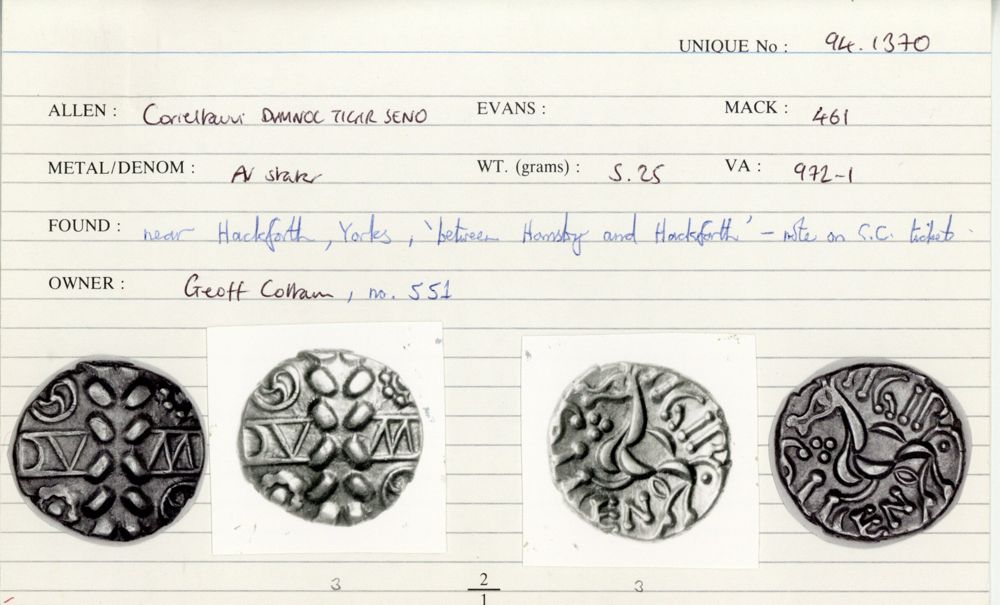 UNIQUE No : 94.1370
ALLEN : Corieltauvi DUMNOC TIGIR SENO EVANS : MACK : 461
METAL/DENOM : AV stater WT. (grams) : 5.25 VA : 972-1
FOUND : near Hackforth, Yorks, 'between Hornsby and Hackforth' - note on S.C. ticket.
OWNER : Geoff Cottam, no. 551
DV M
SEN
3 2 3
1